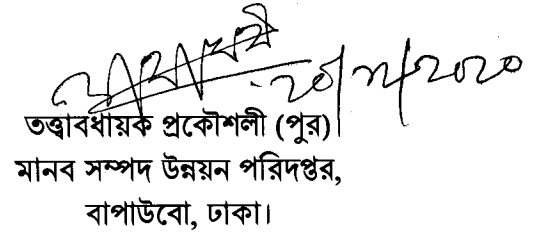 তত্ত্বাবধায়ক প্রকৌশলী (পুর)
মানব সম্পদ উন্নয়ন পরিদপ্তর,
বাপাউবো, ঢাকা।